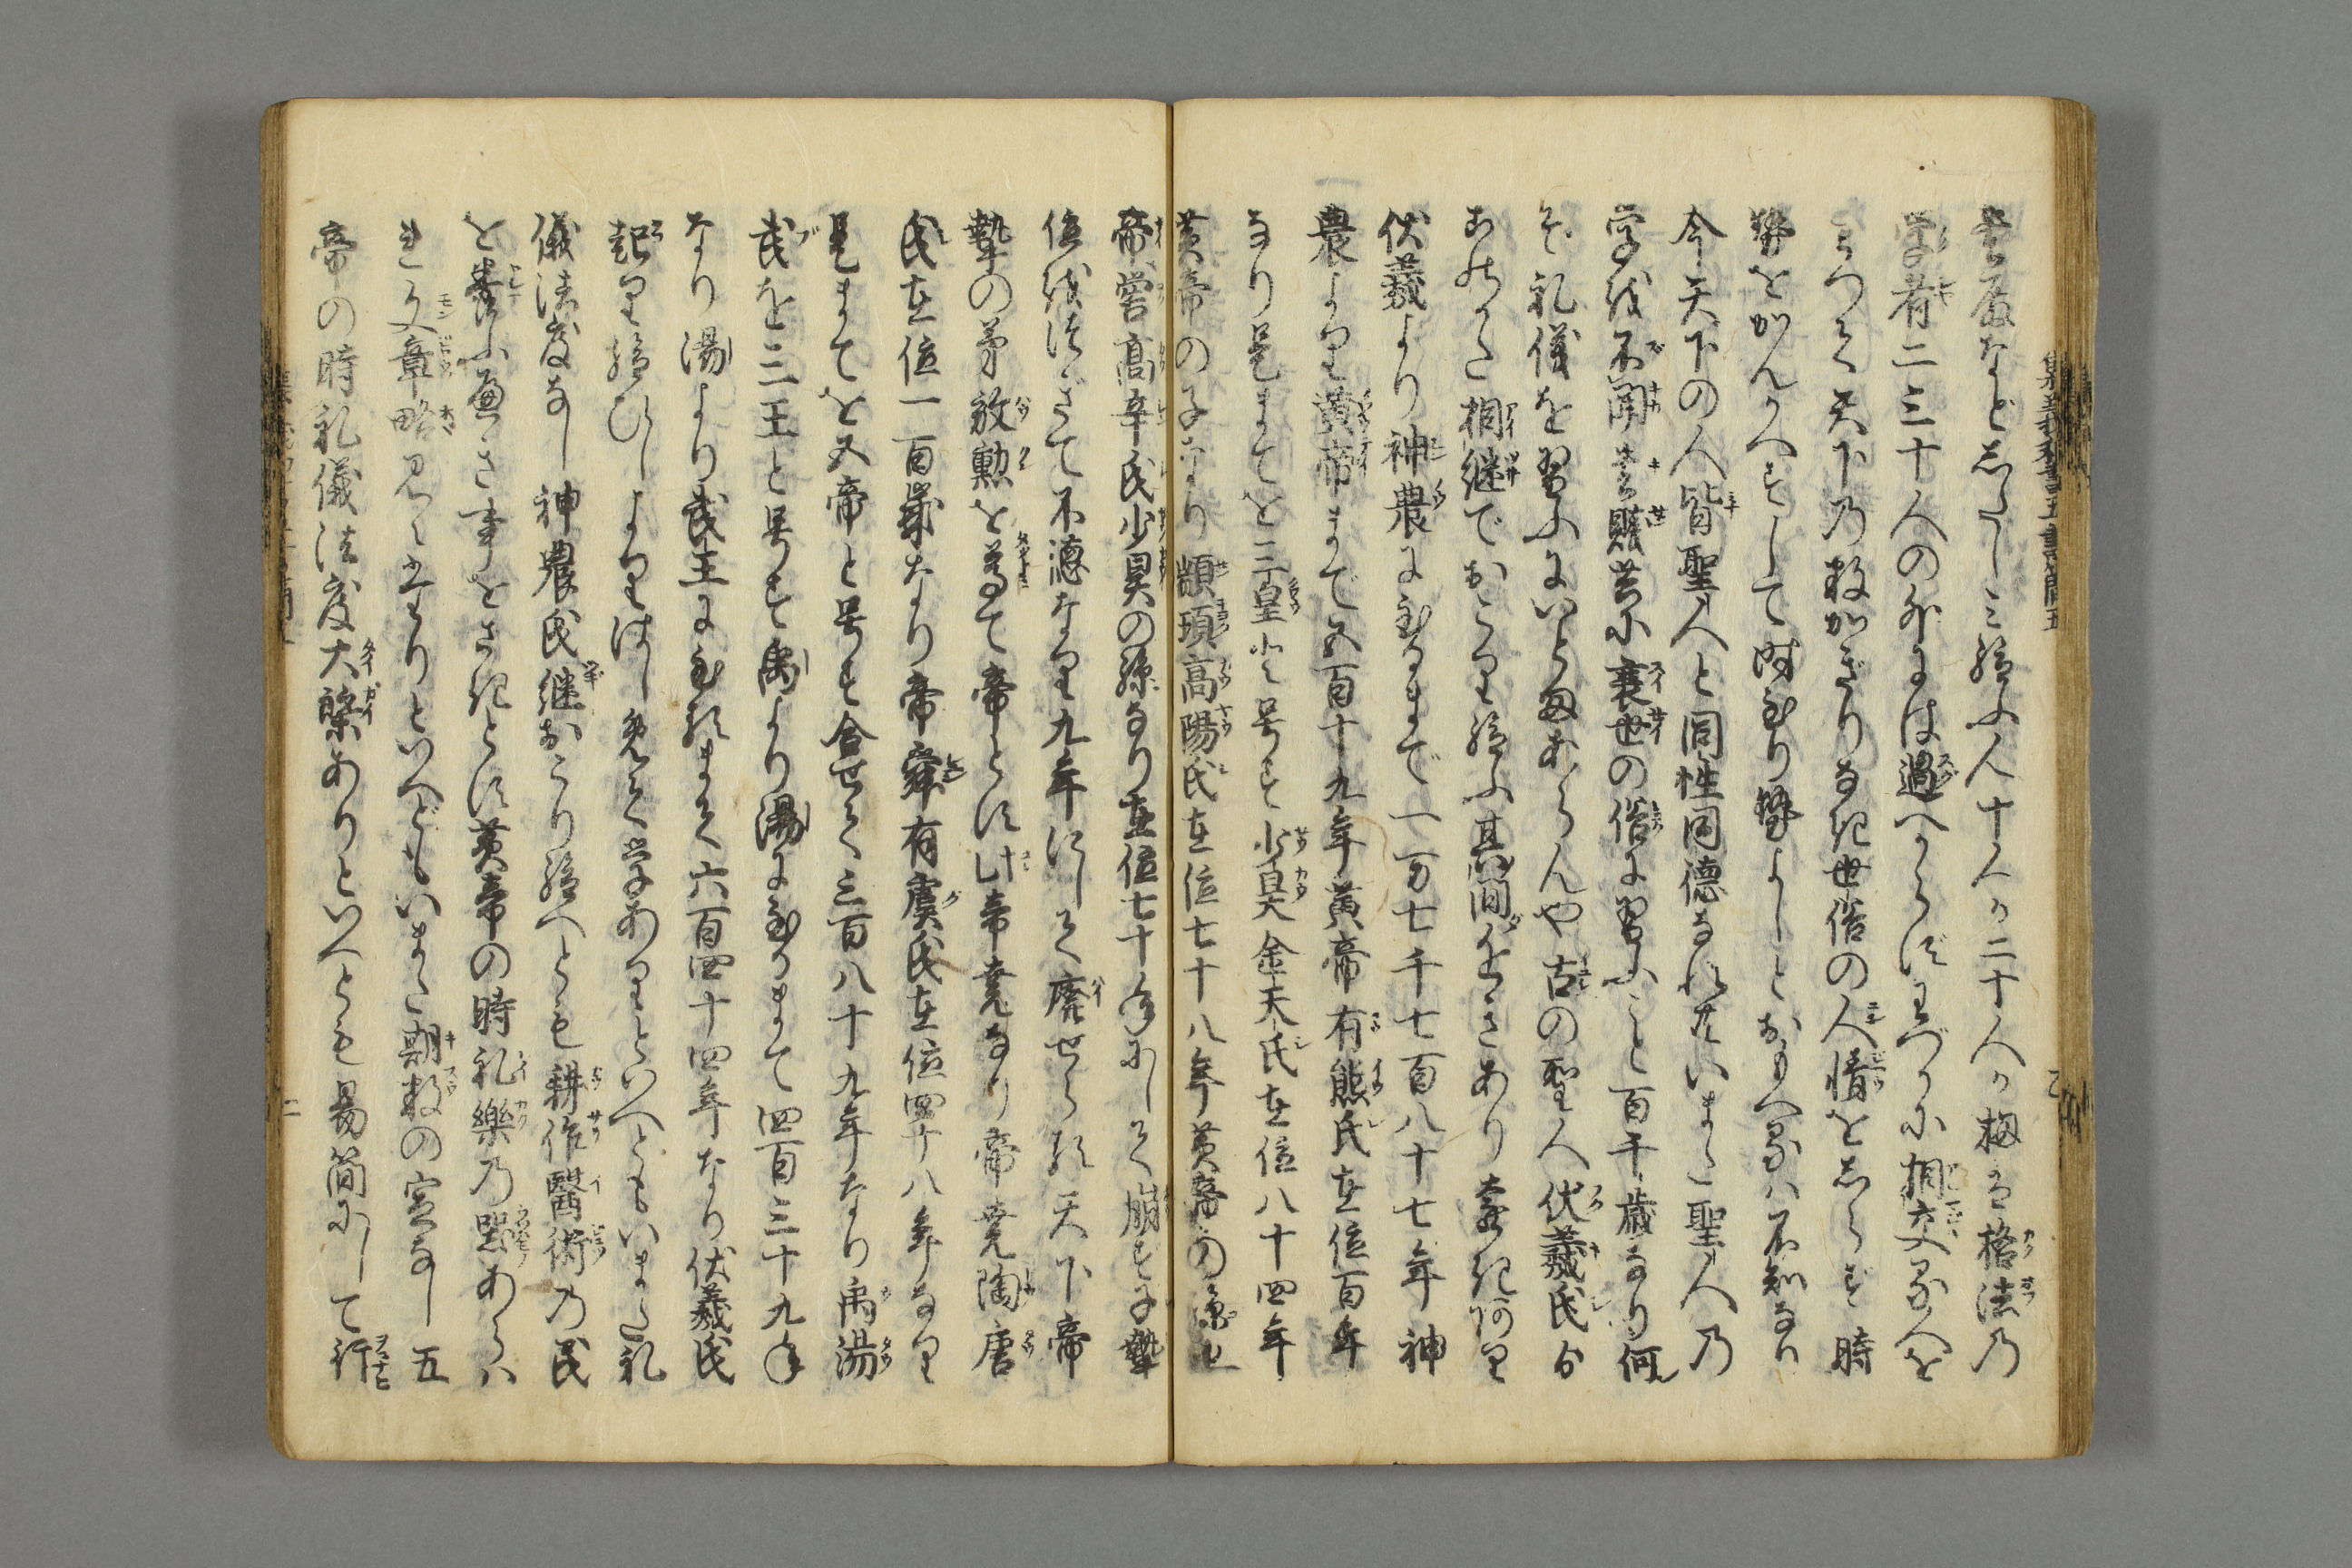 書看などあそバし給ふ人十人か二十人か扨は格法の
学者二三十人の外には過へからずわづかに相交る人を
もつて天下の数かぎりなき世俗の人情をあらそひ時
勢をかんかへずして時至り勢よしとおもへるハ不知なり
今天下の人皆聖人と同性同徳なれ共いまた聖人の
学を不聞书賤共に衰世の俗に習ふこと百千歳なり何
ぞ礼儀を習ふにいとまあらんや古の聖人伏羲氏より
このかた相継でおこり給ふ其間近きあり遠きあり
伏羲より神農に至るまで一万七千七百八十七年神
農より黄帝まで五百十九年黄帝有熊氏在位百年
なり是まてを三皇と号す少昊金天氏在位八十四年
黄帝の子なり顓頊高陽氏在位七十八年黄帝の孫也
帝嚳高辛氏少昊の孫なり在位七十年にして崩す子摯
位をつぎて不徳なり九年にして廃せらる天下帝
摯の弟放勲を尊て帝とす此帝堯なり帝堯陶唐
氏在位一百歳なり帝舜有虞氏在位四十八年なり
是まてを五帝と号す合せて三百八十九年なり禹湯
武を三王と号す禹より湯に至るまて四百三十九年
なり湯より武王に至るまて六百四十四年なり伏羲氏
起り給ひしよりはしめて学ありといへともいまた礼
儀法度なし神農氏継おこり給へとも耕作醫術の民
を養ふへき事をさきとす黄帝の時礼樂の器あらハ
れ文章略見へたりといへどもいまた期数の定なし五
帝の時礼儀法度大槩ありといへとも易簡にして行